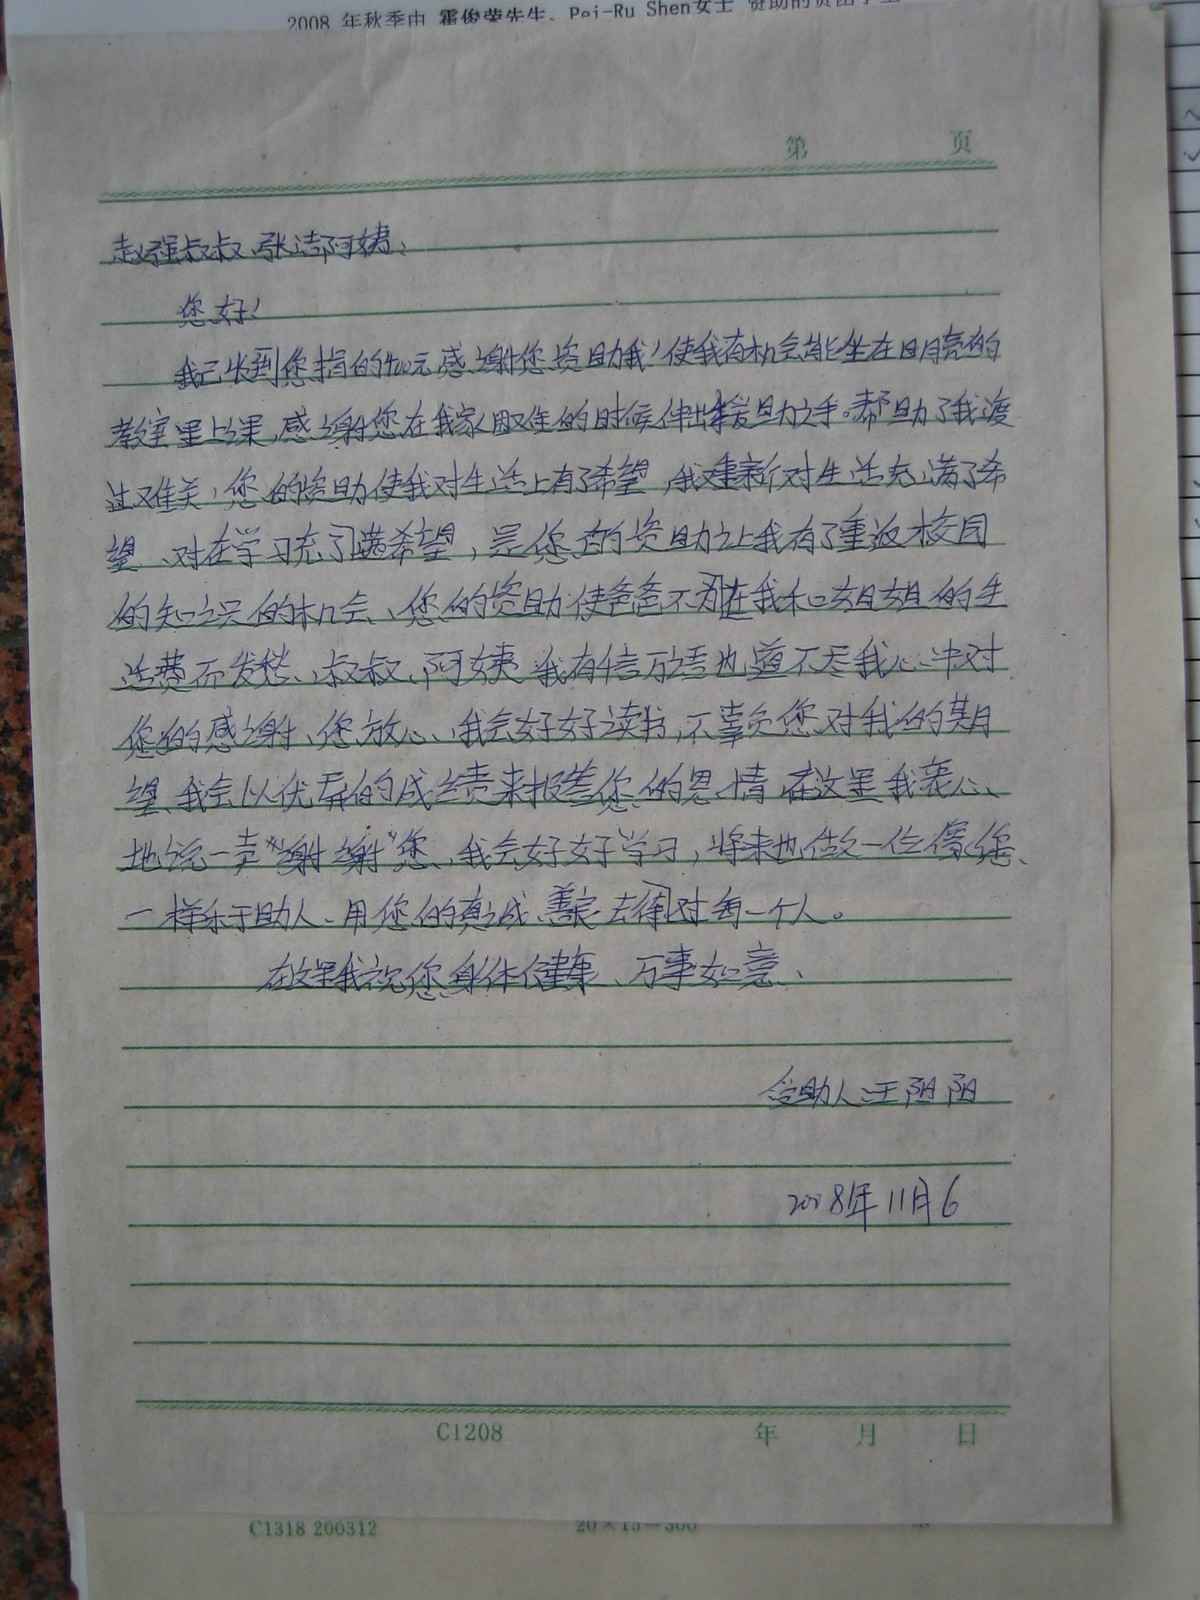 2008 年秋季由 霍俊荣先生、Pei-Ru Shen女士 资助的贫困学生
第 页
赵强叔叔、张洁阿姨、
您好!
我已收到您捐的400元感谢您资助我!使我有机会能坐在明亮的
教室里上课,感谢您在我家困难的时候伸出援助之手。帮助了我渡
过难关,您的资助使我对生活上有了希望,我重新对生活充满了希
望、对在学习充了满希望,是您的资助让我有了重返校园
的知识的机会、您的资助使爸爸不为在我和姐姐的生
活费而发愁、叔叔、阿姨我有千言万语也道不尽我心中对
您的感谢、您放心、我会好好读书,不辜负您对我的期
望、我会以优异的成绩来报答您的恩情在这里我衷心
地说一声“谢谢”您、我会好好学习,将来也做一位像您
一样乐于助人、用您的真诚、善良去待对每一个人。
在这里我祝您身体健康、万事如意、
受助人:王阳阳
2008年11月6
C1208 年 月 日
C1318 200312 20×15=300